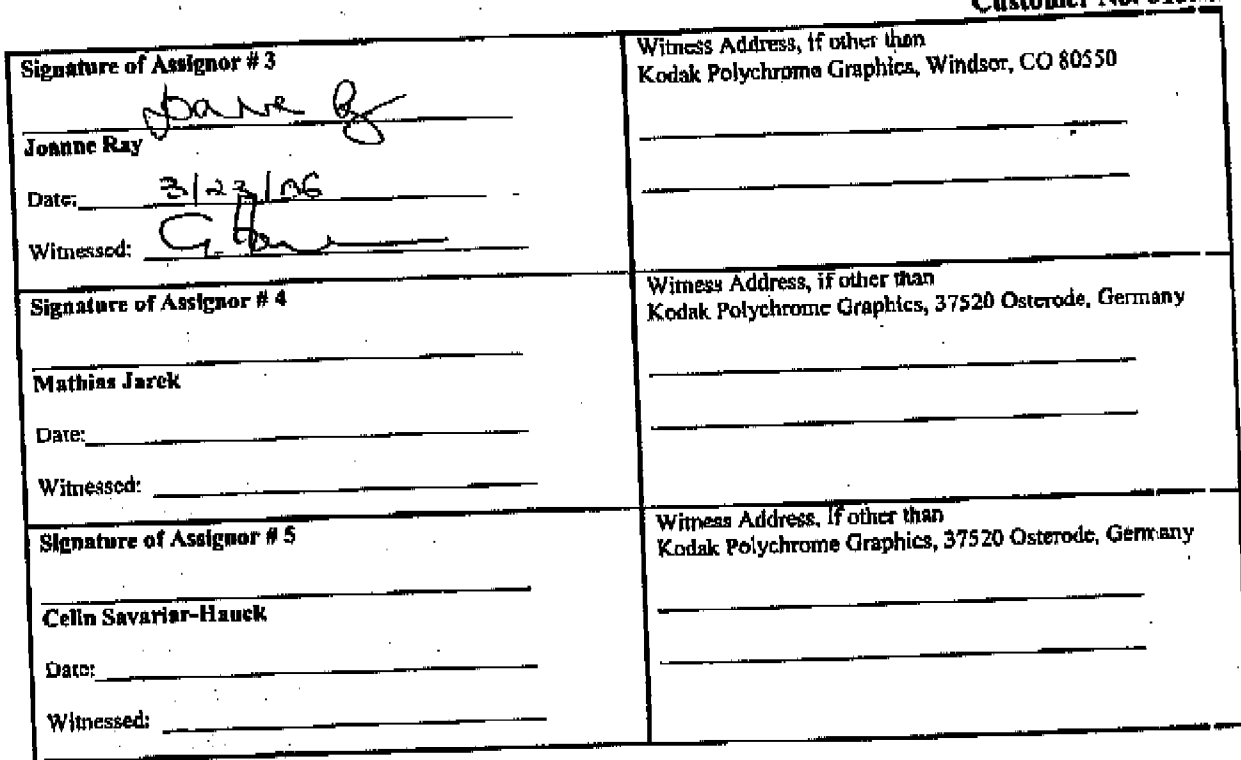 Customer No.
Signature of Assignor # 3
Joanne Ray
Date: 3/23/06
Witnessed:
Witness Address, if other than
Kodak Polychrome Graphics, Windsor, CO 80550
Signature of Assignor # 4
Mathias Jarek
Date:
Witnessed:
Witness Address, if other than
Kodak Polychrome Graphics, 37520 Osterode, Germany
Signature of Assignor # 5
Celin Savariar-Hauck
Date:
Witnessed:
Witness Address, if other than
Kodak Polychrome Graphics, 37520 Osterode, Germany